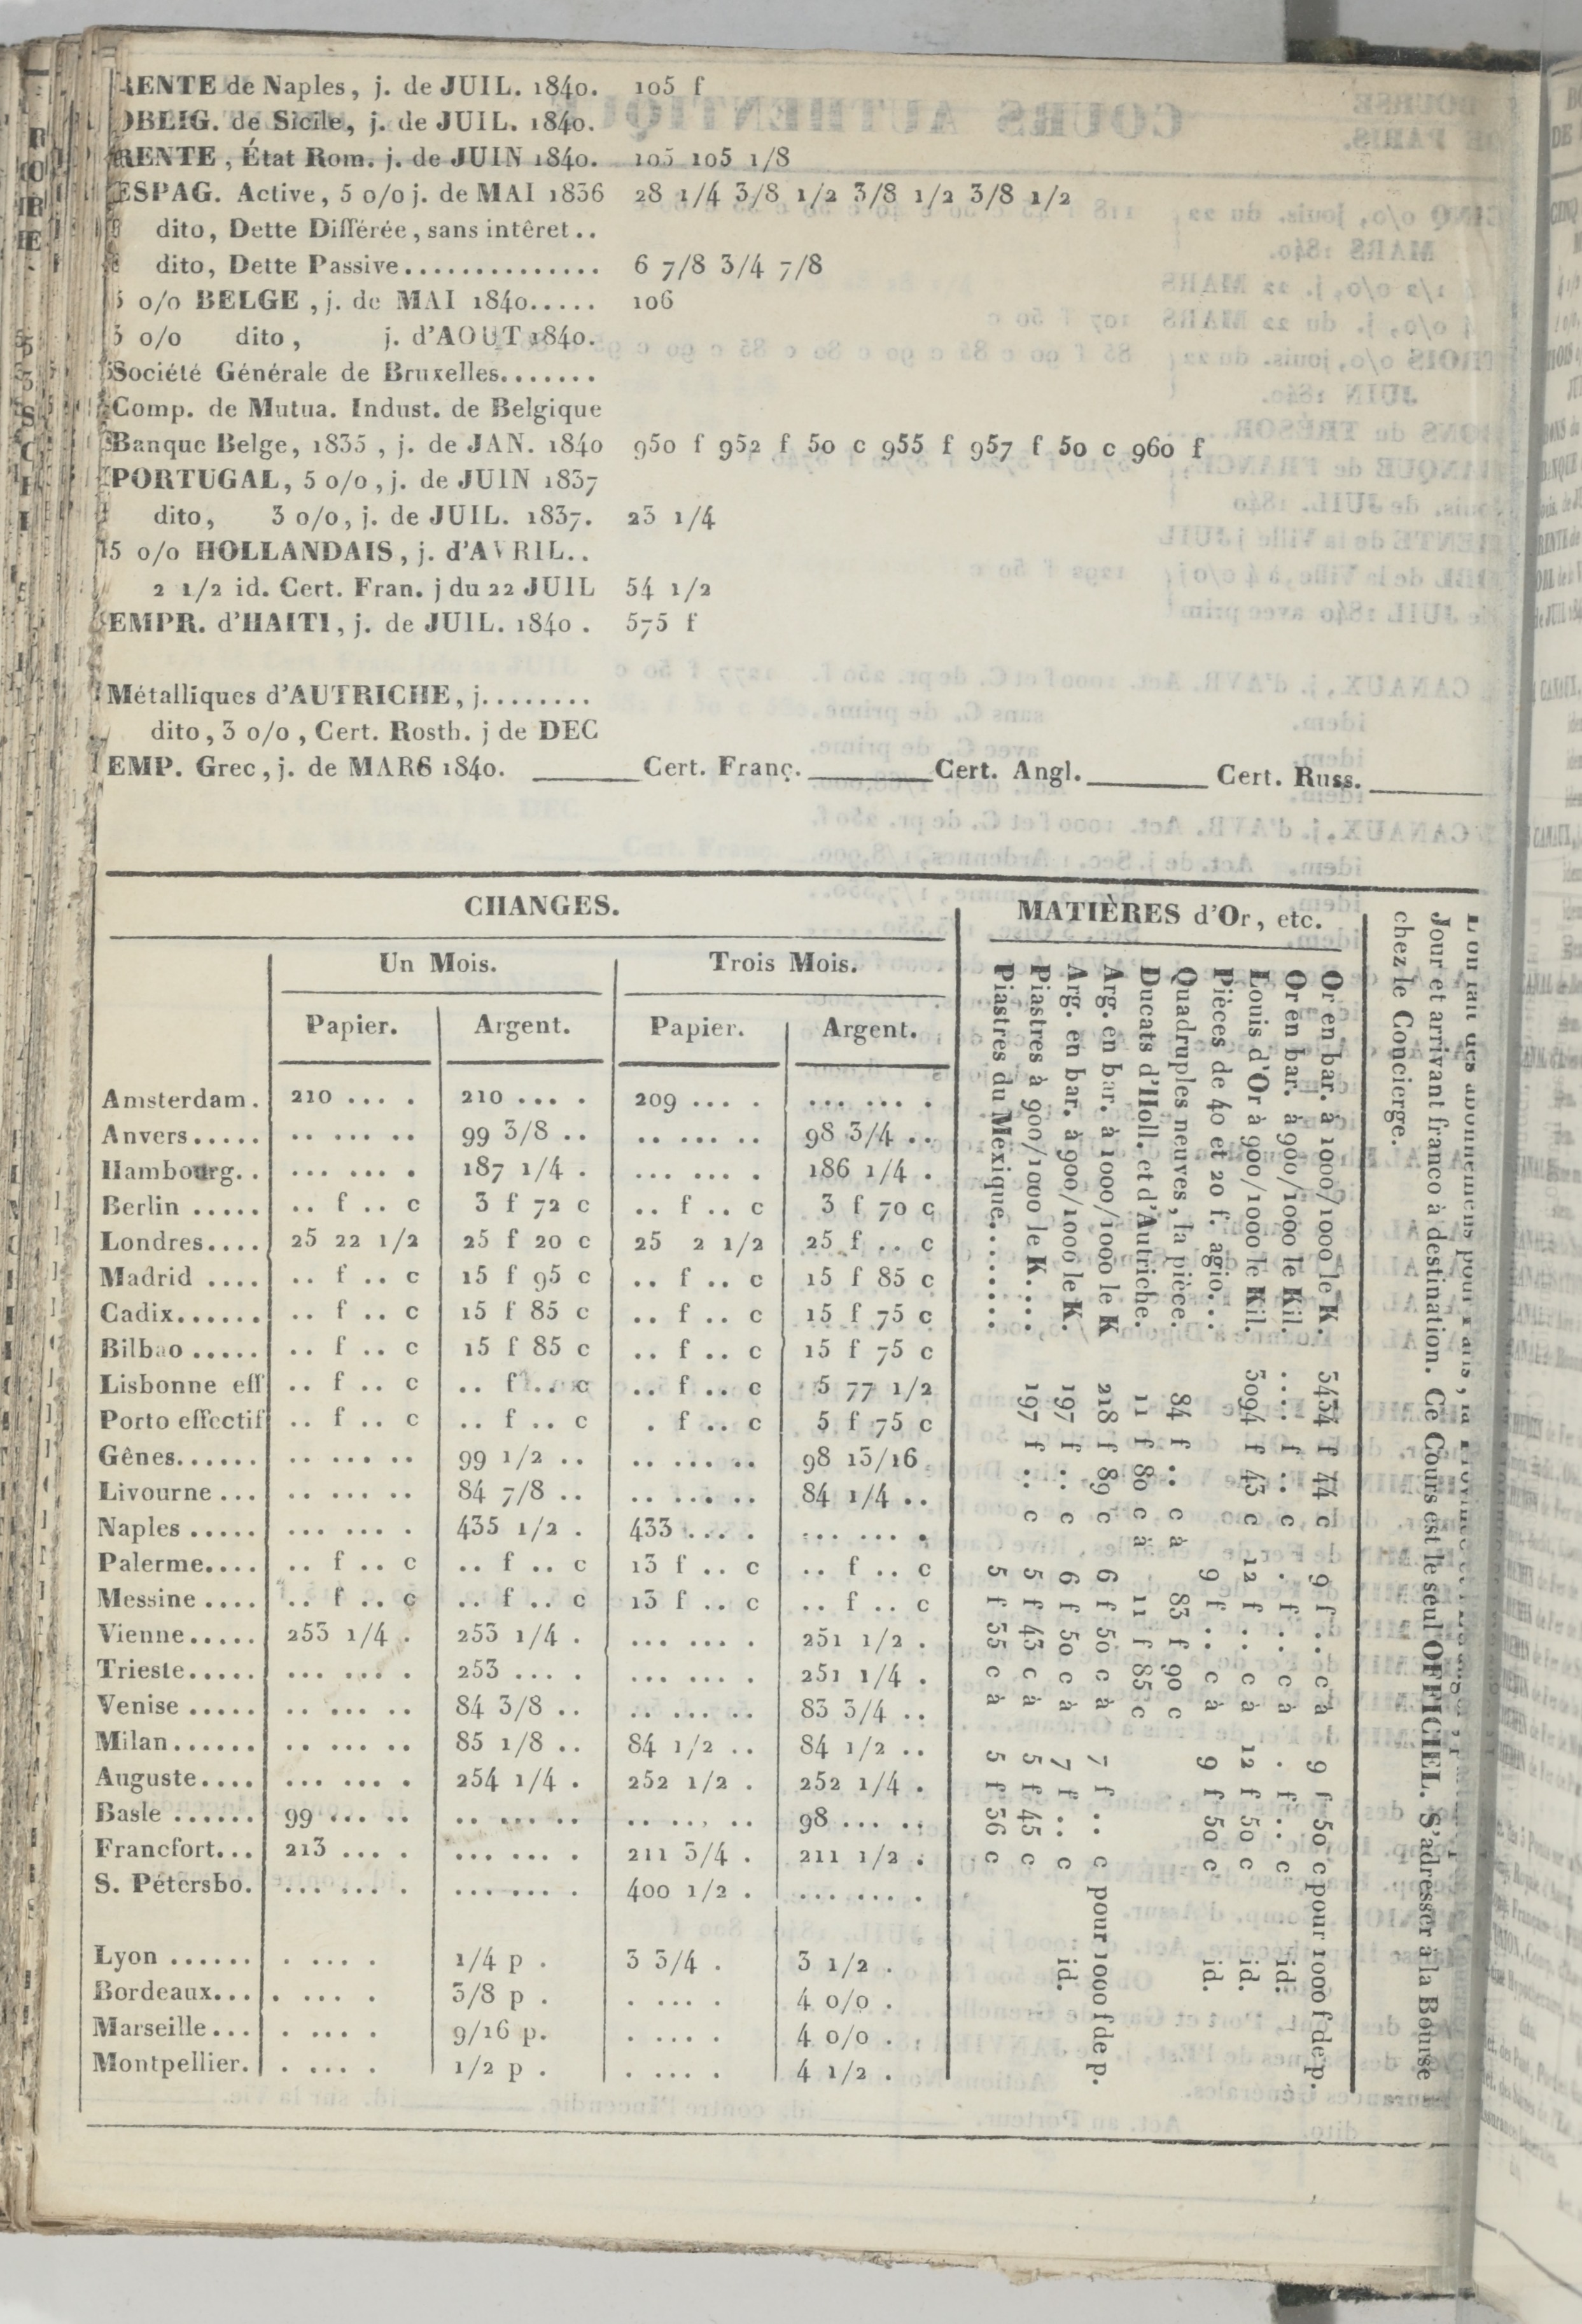 RENTE de Naples, j. de JUIL. 1840. 105 f
OBLIG. de Sicile, j. de JUIL. 1840.
RENTE, État Rom. j. de JUIN 1840. 105 105 1/8
ESPAG. Active, 5 o/o j. de MAI 1836 28 1/4 3/8 1/2 3/8 1/2 3/8 1/2
dito, Dette Différée, sans intêret..
dito, Dette Passive.............. 6 7/8 3/4 7/8
5 o/o BELGE, j. de MAI 1840..... 106
5 o/o dito, j. d'AOUT 1840.
Société Générale de Bruxelles.......
Comp. de Mutua. Indust. de Belgique
Banque Belge, 1835, j. de JAN. 1840 950 f 952 f 50 c 955 f 957 f 50 c 960 f
PORTUGAL, 5 o/o, j. de JUIN 1837
dito, 3 o/o, j. de JUIL. 1837. 23 1/4
5 o/o HOLLANDAIS, j. d'AVRIL..
2 1/2 id. Cert. Fran. j du 22 JUIL 54 1/2
EMPR. d'HAITI, j. de JUIL. 1840. 575 f
Métalliques d'AUTRICHE, j........
dito, 3 o/o, Cert. Rosth. j de DEC
EMP. Grec, j. de MARS 1840. ______ Cert. Franç. ______ Cert. Angl. ______ Cert. Russ. ______
CHANGES.
Un Mois. Trois Mois.
Papier. Argent. Papier. Argent.
Amsterdam. 210 ... . 210 ... . 209 ... . ... ... .
Anvers..... .. ... .. 99 3/8 .. .. ... .. 98 3/4 ..
Hambourg.. ... ... . 187 1/4 . ... ... . 186 1/4 .
Berlin ..... .. f .. c 3 f 72 c .. f .. c 3 f 70 c
Londres.... 25 22 1/2 25 f 20 c 25 2 1/2 25 f .. c
Madrid .... .. f .. c 15 f 95 c .. f .. c 15 f 85 c
Cadix...... .. f .. c 15 f 85 c .. f .. c 15 f 75 c
Bilbao ..... .. f .. c 15 f 85 c .. f .. c 15 f 75 c
Lisbonne eff .. f .. c .. f .. c .. f .. c 5 77 1/2
Porto effectif .. f .. c .. f .. c . f .. c 5 f 75 c
Gênes...... .. ... .. 99 1/2 .. .. ... .. 98 13/16
Livourne ... .. ... .. 84 7/8 .. .. ... .. 84 1/4 ..
Naples ..... ... ... . 435 1/2 . 433 ... . ... ... .
Palerme.... .. f .. c .. f .. c 13 f .. c .. f .. c
Messine .... .. f .. c .. f .. c 13 f .. c .. f .. c
Vienne..... 253 1/4 . 253 1/4 . ... ... . 251 1/2 .
Trieste..... ... ... . 253 ... . ... ... . 251 1/4 .
Venise ..... .. ... .. 84 3/8 .. .. ... .. 83 3/4 ..
Milan...... .. ... .. 85 1/8 .. 84 1/2 .. 84 1/2 ..
Auguste.... ... ... . 254 1/4 . 252 1/2 . 252 1/4 .
Basle ...... 99 ... .. .. ... .. .. ... .. 98 ... ..
Francfort... 213 ... . ... ... . 211 3/4 . 211 1/2 .
S. Pétersbo. ... ... . ... ... . 400 1/2 . ... ... .
Lyon ...... . ... . 1/4 p . 3 3/4 . 3 1/2 .
Bordeaux... . ... . 3/8 p . . ... . 4 o/o .
Marseille... . ... . 9/16 p. . ... . 4 o/o .
Montpellier. . ... . 1/2 p . . ... . 4 1/2 .
MATIÈRES d'Or, etc.
Or en bar. à 1000/1000 le K. 3434 f 44 c 9 f .. c à 9 f 50 c pour 1000 f de p.
Or en bar. à 900/1000 le Kil. .... f .. c . f .. c à . f .. c id.
Louis d'Or à 900/1000 le Kil. 3094 f 43 c 12 f .. c à 12 f 50 c id.
Pièces de 40 et 20 f. agio... 9 f .. c à 9 f 50 c id.
Quadruples neuves, la pièce. 84 f .. c à 83 f 90 c
Ducats d'Holl. et d'Autriche. 11 f 80 c à 11 f 85 c
Arg. en bar. à 1000/1000 le K 218 f 89 c 6 f 50 c à 7 f .. c pour 1000 f de p.
Arg. en bar. à 900/1000 le K. 197 f .. c 6 f 50 c à 7 f .. c id.
Piastres à 900/1000 le K.... 197 f .. c 5 f 43 c à 5 f 45 c
Piastres du Mexique....... 5 f 55 c à 5 f 56 c
L'on fait des abonnemens pour
Jour et arrivant franco à destination. Ce Cours est le seul OFFICIEL. S'adresser à la Bourse
chez le Concierge.